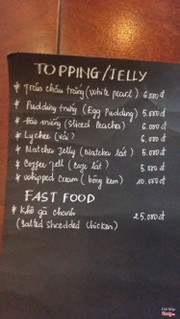 TOPPING/JELLY
* Trân châu trắng (White pearl) 6.000đ
* Pudding trứng (Egg Pudding) 5.000đ
* Đào miếng (Sliced Peaches) 6.000đ
* Lychee (vải) 6.000đ
* Matcha Jelly (Matcha lát) 5.000đ
* Coffee Jell (Cafe lát) 5.000đ
* Whipped Cream (bông kem) 10.000đ
FAST FOOD
* Khô gà chanh 25.000đ
(Salted shredded chicken)